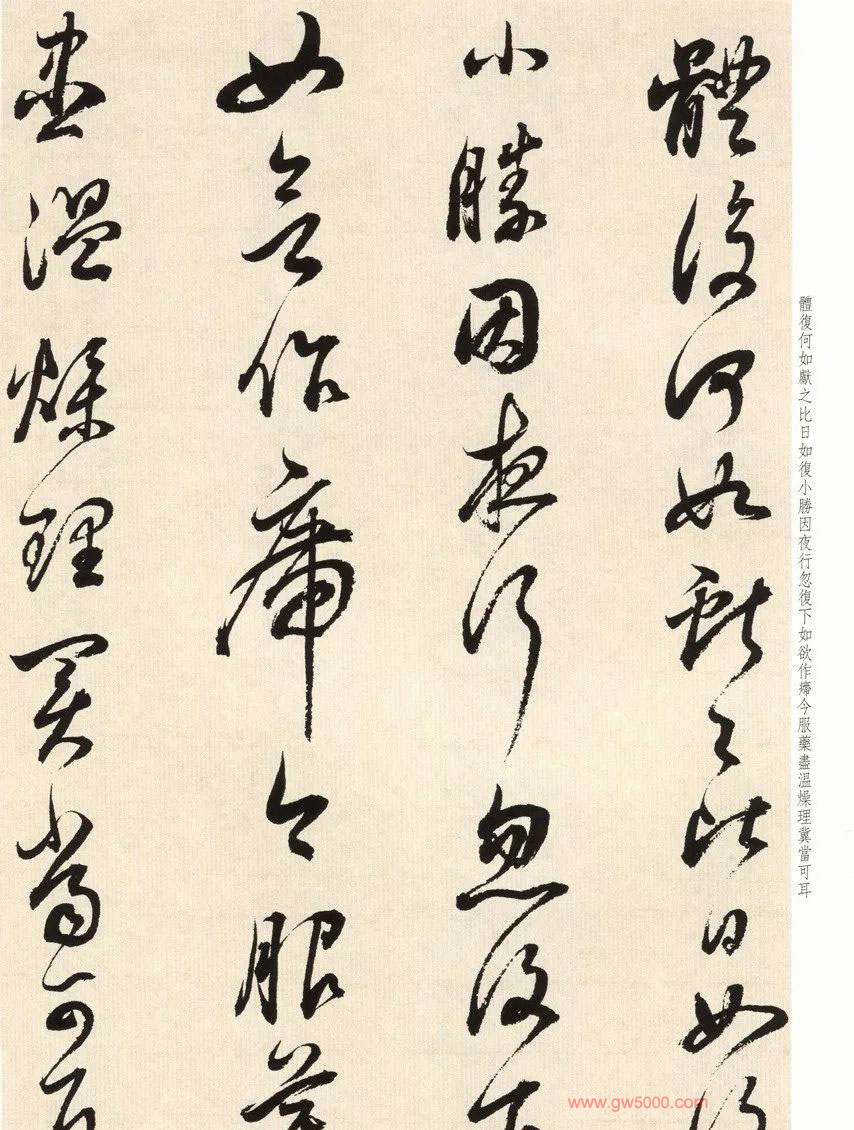 體復何如獻之比日如復
小勝因夜行忽復下
如欲作㿃今服藥
盡温燥理冀當可耳
體復何如獻之比日如復小勝因夜行忽復下如欲作㿃今服藥盡温燥理冀當可耳
www.gw5000.com